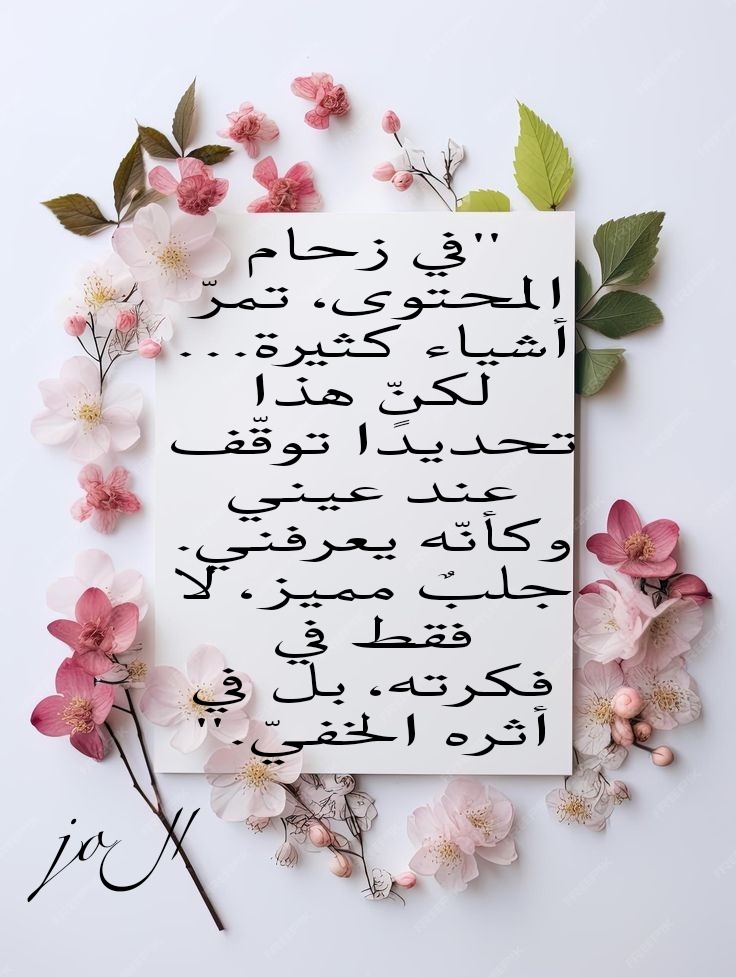 "في زحام
المحتوى، تمرّ
أشياء كثيرة...
لكنّ هذا
تحديدًا توقّف
عند عيني
وكأنّه يعرفني.
جلبٌ مميز، لا
فقط في
فكرته، بل في
أثره الخفيّ."